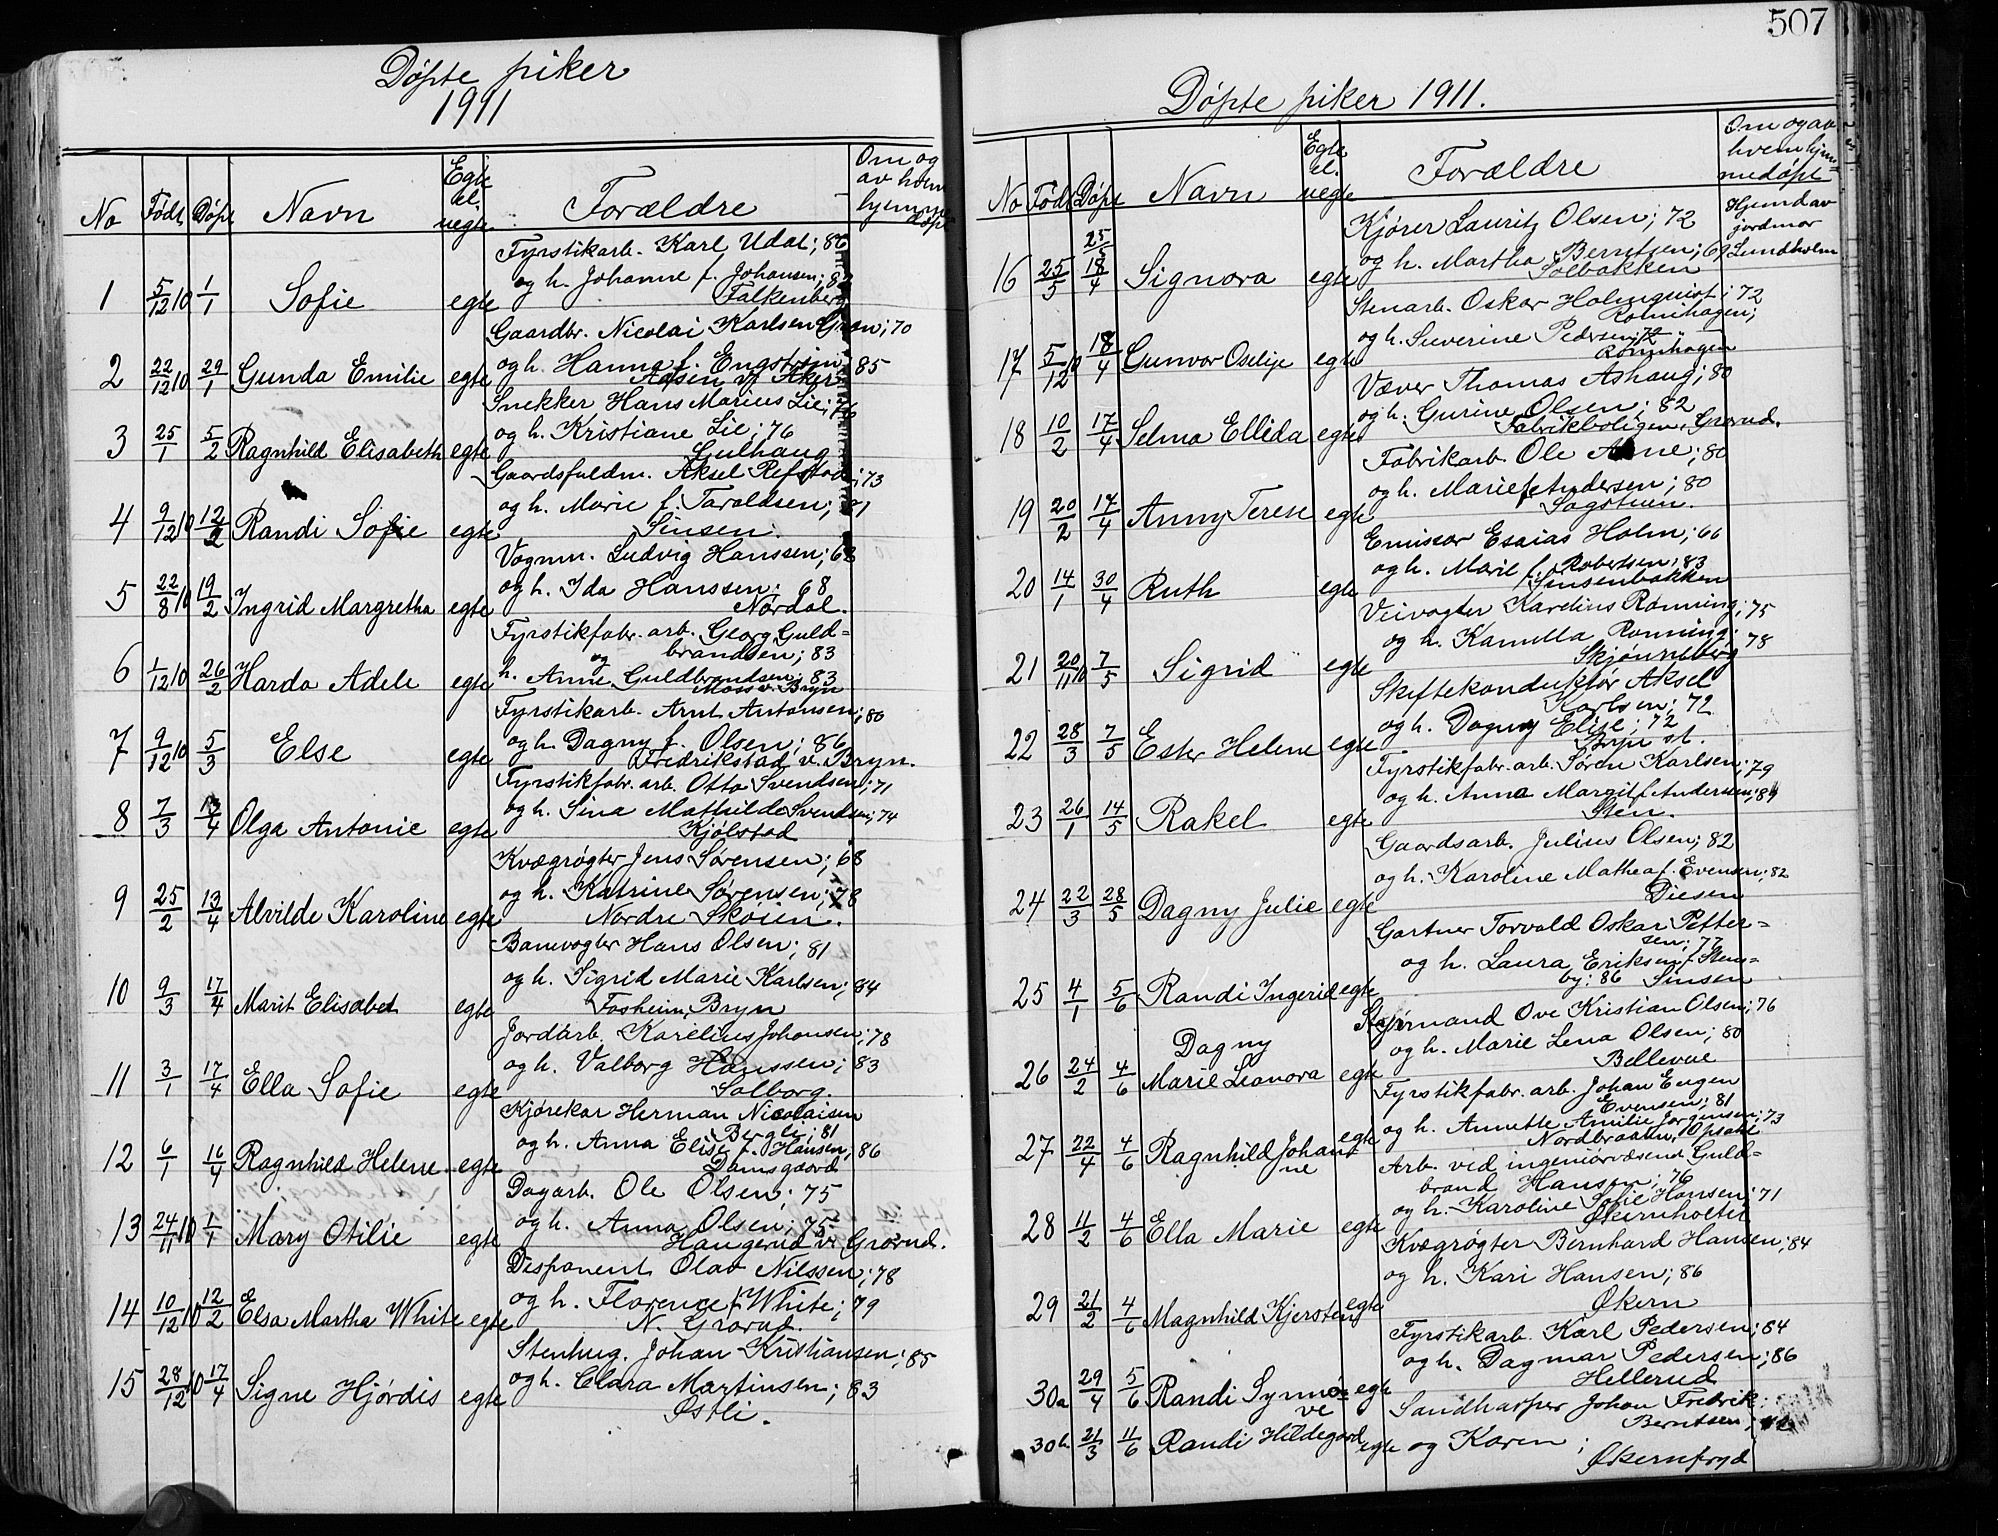 507
Døpte piker
1911
No Født Døpt Navn Egte el. uegte Forældre Om og av hvem hjemmedøpt
Fyrstikarb. Karl Udal; 86
og h. Johanne f. Johansen;
1 5/12 10 1/1 Sofie egte Falkenberg
Gaardbr. Nicolai Karlsen; 70
og h. Hanna f. Engstrøm; 85
2 22/12 10 29/1 Gunda Emilie egte v/ Aker
Snekker Hans Marius Lie; 76
og h. Kristiane Lie; 76
3 25/1 5/2 Ragnhild Elisabeth egte Lulhaug
Gaardsfuldm. Aksel Refstad; 73
og h. Marie f. Taraldsen;
4 9/12 10 12/2 Randi Sofie egte Sinsen.
Vognm. Ludvig Hanssen; 68
og h. Ida Hanssen; 68
5 22/8 10 19/2 Ingrid Margretha egte Nordal.
Fyrstikfabr. arb. Georg Guld=
brandsen; 83
og
6 1/12 10 26/2 Harda Adele egte h. Anne Guldbrandsen; 83
Moss v. Bryn
Fyrstikarb. Arnt Antonsen; 80
og h. Dagny f. Olsen; 86
7 9/12 10 5/3 Else egte Fredrikstad v. Bryn.
Fyrstikfabr. arb. Otto Svendsen; 71
og h. Sina Mathilde Svendsen; 74
8 7/3 13/4 Olga Antonie egte Kjølstad
Kvægrøgter Jens Sørensen; 68
og h. Katrine Sørensen; 78
9 25/2 13/4 Alvilde Karoline egte Nordre Skøien.
Banevogter Hans Olsen; 81
og h. Sigrid Marie Karlsen; 84
10 9/3 17/4 Marit Elisabet egte Fosheim, Bryn
Jordarb. Karelius Johansen; 78
og h. Valborg Hanssen; 83
11 3/1 17/4 Ella Sofie egte Solborg.
Kjørekar Herman Nicolaisen
Bergli; 81
og h. Anna Elise f. Hansen, 86
12 6/1 16/4 Ragnhild Helene egte Damsgaard
Dagarb. Ole Olsen; 75
og h. Anna Olsen; 75
13 24/11 10 1/1 Mary Otilie egte Haugerud v. Grorud.
Disponent Olav Nilssen; 78
og h. Florence f. White; 79
14 10/12 10 12/2 Elsa Martha White egte N. Grorud.
Stenhug. Johan Kristiansen; 85
og h. Clara Martinsen; 83
15 28/12 10 17/4 Signe Hjørdis egte Østli.
Døpte piker 1911.
No Født Døpt Navn Egte el. uegte Forældre Om og av hvem hjemmedøpt
Kjører Lauritz Olsen; 72 Hjemd av jordmor Lundholm
og h. Martha Berntsen; 69
16 25/5 18/4 Signora egte Solbakken
Stenarb. Oskar Holmquist; 72
Romihagen;
og h. Severine Pedersen; 72
17 5/12 10 18/4 Gunvor Oselije egte Romihagen
Væver Thomas Ashaug; 80
og h. Gurine Olsen; 82
18 10/2 17/4 Selma Ellida egte Fabrikboligen, Grorud.
Fabrikarb. Ole Arne; 80
og h. Marie f. Andersen; 80
19 20/2 17/4 Anny Terese egte Sagstuen.
Emissær Esaias Holm; 66
og h. Marie f. Robertsen; 83
20 14/1 30/4 Ruth egte Sinsenbakken
Veivogter Karelius Rønning; 75
og h. Kamilla Rønning; 78
21 20/11 10 7/5 Sigrid egte Skjønneberg
Skiftekonduktør Aksel
Karlsen; 72
og h. Dagny Elise; 72
22 28/3 7/5 Ester Helene egte Bryn st.
Fyrstikfabr. arb. Søren Karlsen; 79
og h. Anna Margit f. Anderssen; 84
23 26/1 14/5 Rakel egte Sten.
Gaardsarb. Julius Olsen; 82
og h. Karoline Mathea f. Evensen; 82
24 22/3 28/5 Dagny Julie egte Disen
Gartner Torvald Oskar Petter=
sen; 77
og h. Laura Eriksen f. Stens=
by; 86 Sinsen
25 4/1 5/6 Randi Ingerid egte
Styrmand Ove Kristian Olsen; 76
og h. Marie Lena Olsen; 80
26 24/2 4/6 Dagny Marie Leonora egte Bellevue
Fyrstikfabr. arb. Johan Eugen
Evensen; 81
og h. Annette Amilie Jørgensen; 73
27 22/4 4/6 Ragnhild Johanne egte Nordbraaten, Opsal
Arb. ved ingeniørvæsenet Guld=
brand Hansen; 76
og h. Karoline Sofie Hansen; 71
28 11/2 4/6 Ella Marie egte Økernholtet
Kvægrøgter Bernhard Hansen; 84
og h. Kari Hansen; 86
29 21/2 4/6 Magnhild Kjersten egte Økern
Fyrstikarb. Karl Pedersen; 84
og h. Dagmar Pedersen; 86
30a 29/4 5/6 Randi Synnøve egte Hellerud
Sandharper Johan Fredrik
Berntsen;
30b. 21/3 11/6 Randi Hildegard egte og Karen;
Økernfryd